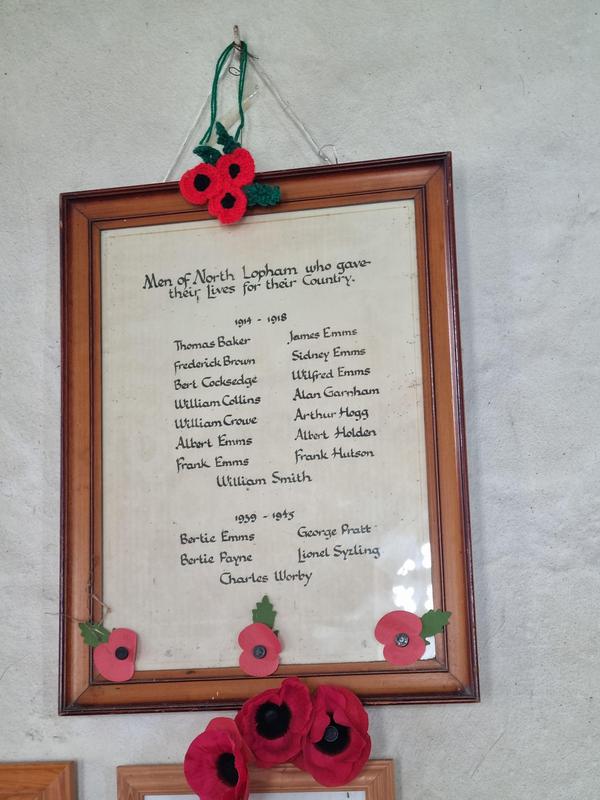 Men of North Lopham who gave
their Lives for their Country.
1914 - 1918
Thomas Baker
Frederick Brown
Bert Cocksedge
William Collins
William Crowe
Albert Emms
Frank Emms
James Emms
Sidney Emms
Wilfred Emms
Alan Garnham
Arthur Hogg
Albert Holden
Frank Hutson
William Smith
1939 - 1945
Bertie Emms
Bertie Payne
George Pratt
Lionel Syzling
Charles Worby